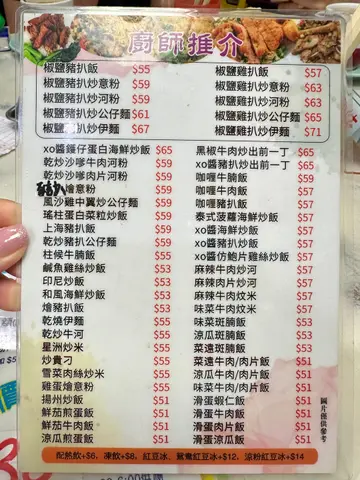 廚師推介
椒鹽豬扒飯 $55
椒鹽豬扒炒意粉 $59
椒鹽豬扒炒河粉 $59
椒鹽豬扒炒公仔麵 $61
椒鹽豬扒炒伊麵 $67
椒鹽雞扒飯 $57
椒鹽雞扒炒意粉 $63
椒鹽雞扒炒河粉 $63
椒鹽雞扒炒公仔麵 $65
椒鹽雞扒炒伊麵 $71
xo醬鏈仔蛋白海鮮炒飯 $65
乾炒沙嗲牛肉河粉 $59
乾炒沙嗲肉片河粉 $59
豬扒燴意粉 $59
風沙雞中翼炒公仔麵 $59
瑤柱蛋白菜粒炒飯 $59
上海豬扒飯 $57
乾炒豬扒公仔麵 $57
柱候牛腩飯 $55
鹹魚雞絲炒飯 $53
印尼炒飯 $53
和風海鮮炒飯 $57
燴豬扒飯 $53
乾燒伊麵 $55
乾炒牛河 $55
星洲炒米 $55
炒貴刁 $55
雪菜肉絲炆米 $55
雞蛋燴意粉 $55
揚州炒飯 $51
鮮茄煎蛋飯 $51
鮮茄牛肉飯 $51
涼瓜煎蛋飯 $51
黑椒牛肉炒出前一丁 $65
xo醬豬扒炒出前一丁 $65
咖喱牛腩飯 $59
咖喱牛肉飯 $57
咖喱豬扒飯 $57
泰式菠蘿海鮮炒飯 $57
xo醬海鮮炒飯 $57
xo醬豬扒炒飯 $57
xo醬仿鮑片雞絲炒飯 $57
麻辣牛肉炒河 $57
麻辣肉片炒河 $57
麻辣牛肉炆米 $57
味菜牛肉炆米 $55
味菜斑腩飯 $53
涼瓜斑腩飯 $53
菜遠斑腩飯 $53
菜遠牛肉/肉片飯 $51
涼瓜牛肉/肉片飯 $51
味菜牛肉/肉片飯 $51
滑蛋蝦仁飯 $51
滑蛋牛肉飯 $51
滑蛋肉片飯 $51
滑蛋涼瓜飯 $51
圖片僅供參考
配熱飲+$6、凍飲+$8、紅豆冰、鴛鴦紅豆冰+$12、涼粉紅豆冰+$14